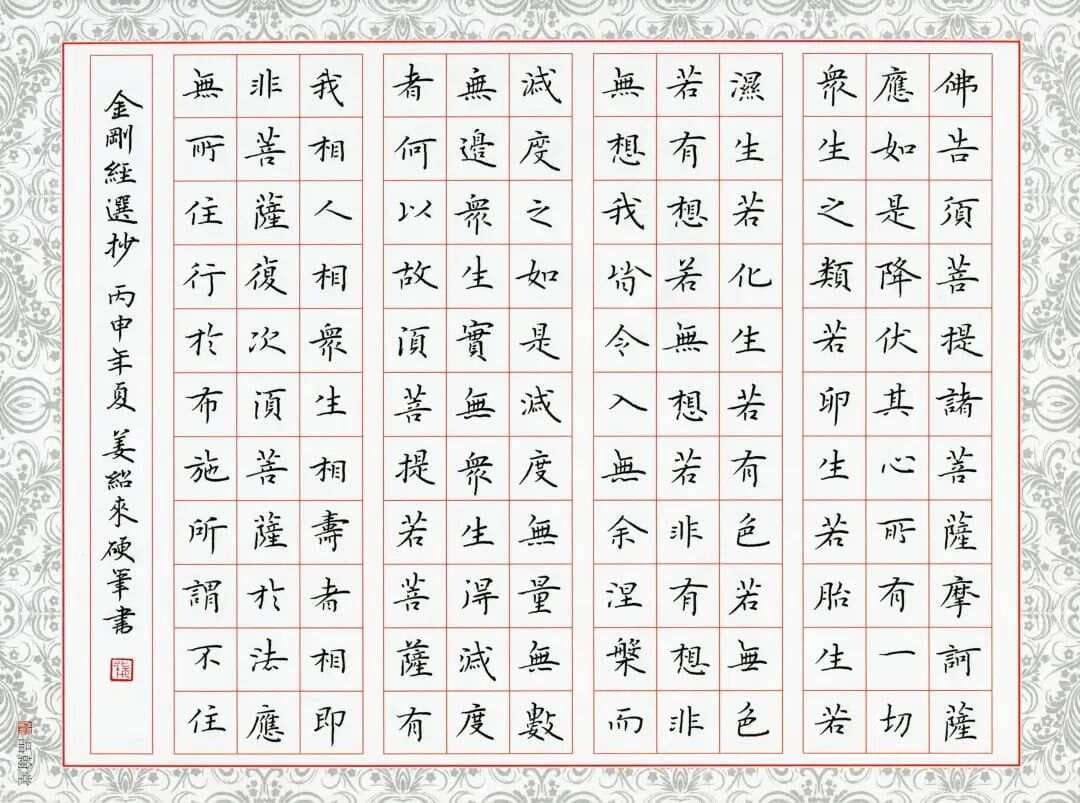 佛告須菩提諸菩薩摩訶薩
應如是降伏其心所有一切
眾生之類若卵生若胎生若
濕生若化生若有色若無色
若有想若無想若非有想非
無想我皆令入無余涅槃而
滅度之如是滅度無量無數
無邊眾生實無眾生得滅度
者何以故須菩提若菩薩有
我相人相眾生相壽者相即
非菩薩復次須菩薩於法應
無所住行於布施所謂不住
金剛經選抄 丙申年夏 姜紹來硬筆書